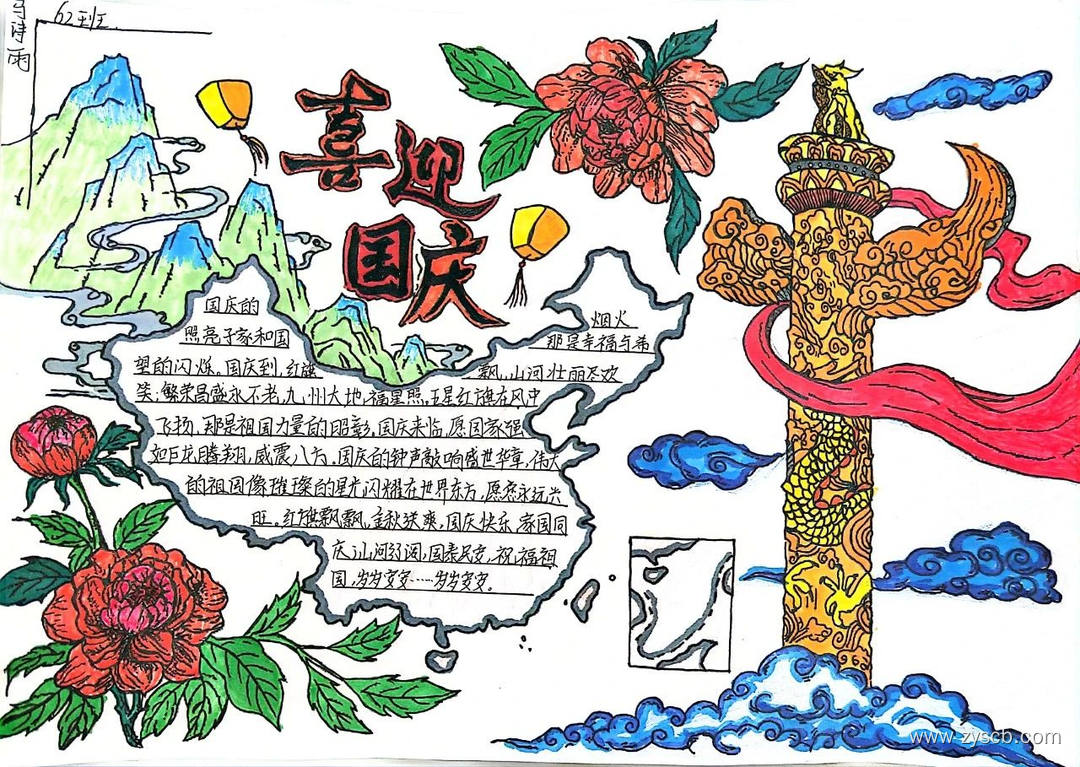 62班
诗雨
喜迎
国庆
国庆的 烟火
照亮了家和国 那是幸福与希
望的闪烁。国庆到,红旗 飘,山河壮丽尽欢
笑,繁荣昌盛永不老,九州大地,福星照,五星红旗在风中
飞扬,那是祖国力量的昭彰,国庆来临,愿国家强
如巨龙腾翔,威震八方。国庆的钟声敲响盛世华章,伟大
的祖国像璀璨的星光闪耀在世界东方,愿您永远兴
旺。红旗飘飘,金秋送爽,国庆快乐,家国同
庆,山河辽阔,国泰民安,祝福祖
国,岁岁安安……岁岁安安。
www.zyscb.com